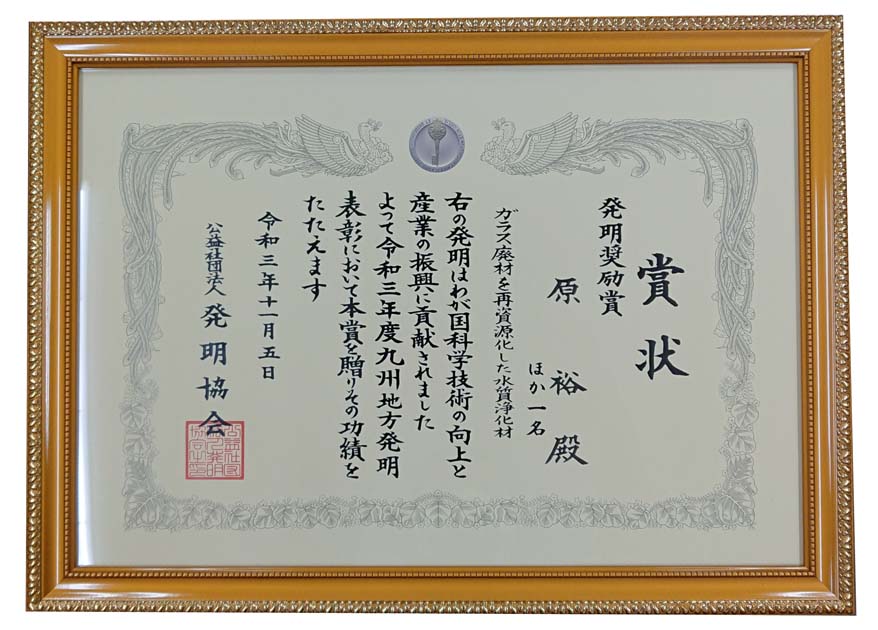 賞状
発明奨励賞
原裕殿
ほか一名
ガラス廃材を再資源化した水質浄化材
右の発明はわが国科学技術の向上と
産業の振興に貢献されました
よって令和三年度九州地方発明
表彰において本賞を贈りその功績を
たたえます
令和三年十一月五日
公益社団法人 発明協会